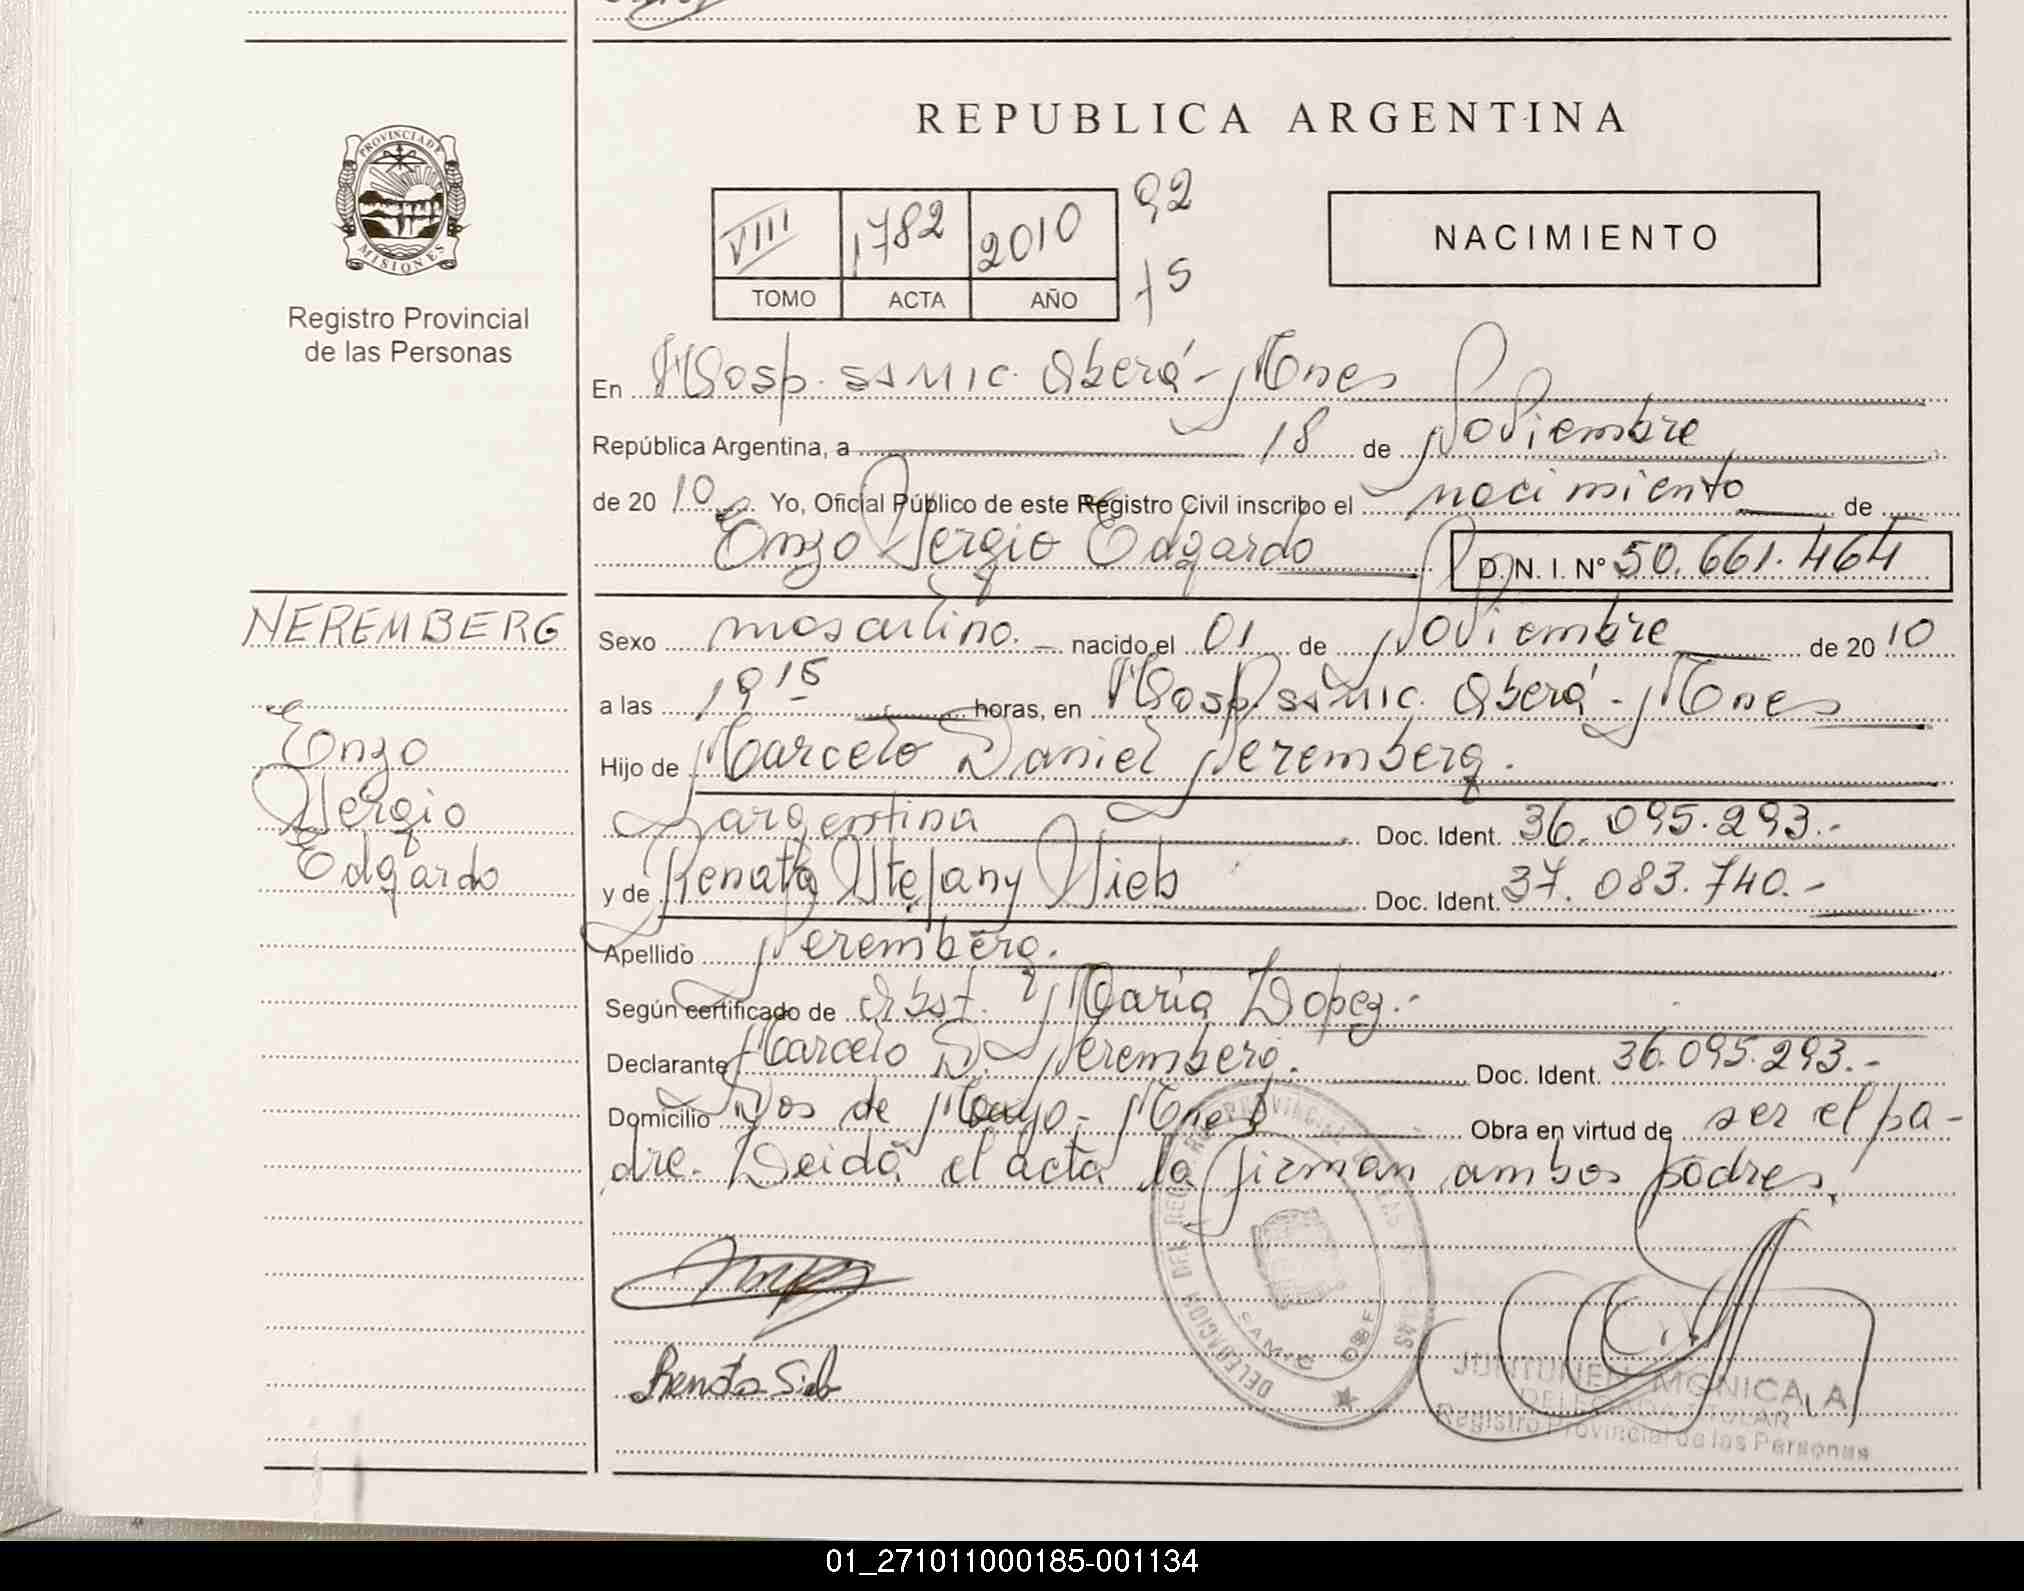 REPUBLICA ARGENTINA
PROVINCIA DE
MISIONES
Registro Provincial
de las Personas
VIII 1782 2010 92
TOMO ACTA AÑO 75
NACIMIENTO
En Hosp. SAMIC. Oberá - Mnes
República Argentina, a 18 de Noviembre
de 2010 Yo, Oficial Público de este Registro Civil inscribo el nacimiento de
Enzo Sergio Edgardo D. N. I. Nº 50.661.464
NEREMBERG
Enzo
Sergio
Edgardo
Sexo masculino. nacido el 01 de Noviembre de 2010
a las 19 15 horas, en Hosp. SAMIC. Oberá - Mnes
Hijo de Marcelo Daniel Neremberg.
argentina Doc. Ident. 36.095.293.-
y de Renata Stefany Sieb Doc. Ident. 37.083.740.-
Apellido Neremberg.
Según certificado de Obst. María Lopez.-
Declarante Marcelo D. Neremberg. Doc. Ident. 36.095.293.-
Domicilio Dos de Mayo - Mnes Obra en virtud de ser el pa-
dre. Leída el acta la firman ambos padres.
Renata Sieb
DELEGACION DEL REGISTRO PROVINCIAL
SAMIC
JUNTUNEN MONICA A
DELEGADA TITULAR
Registro Provincial de las Personas
01_271011000185-001134